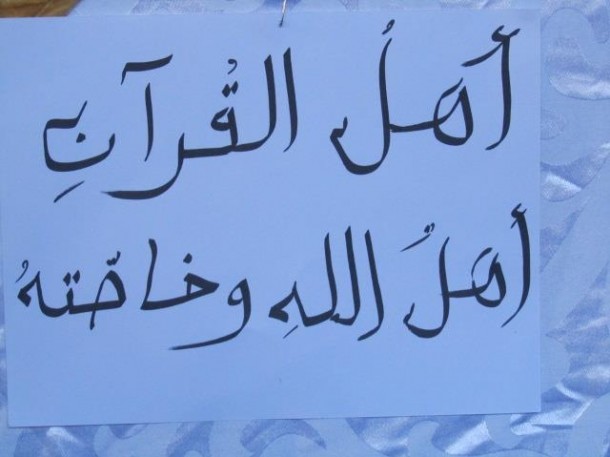 أهلُ القُرآنِ
أهلُ اللهِ وخاصّتهُ